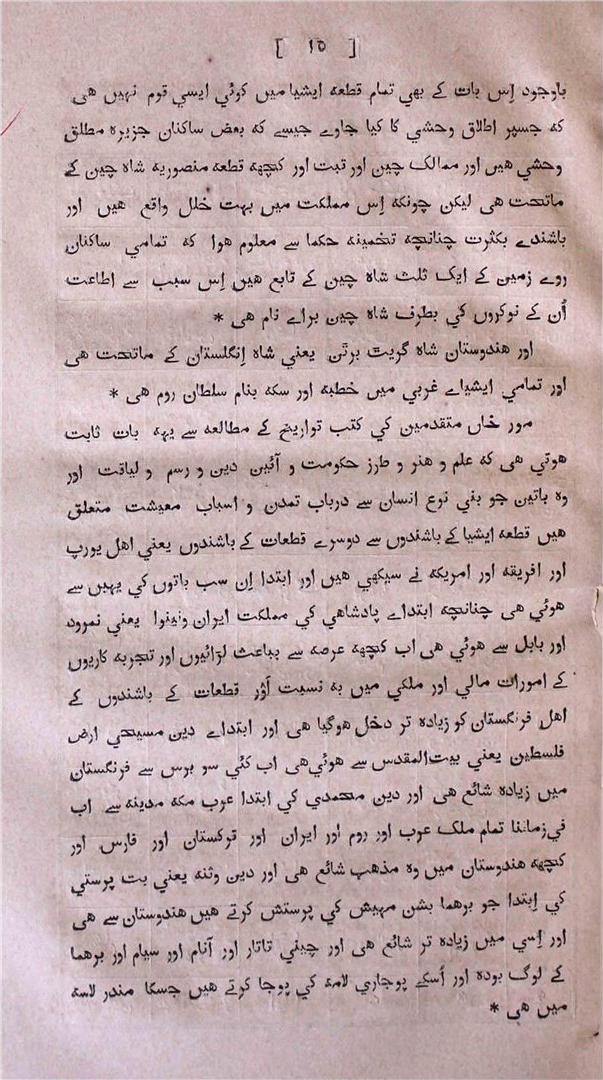 [ ۱۵ ]
باوجود اِس بات کے بھی تمام قطعہ ایشیا میں کوئي ایسي قوم نہیں ھی
کہ جسپر اطلاق وحشي کا کیا جاوے جیسے کہ بعض ساکنان جزیرہ مطلق
وحشي ھیں اور ممالک چین اور تبت اور کچھہ قطعہ منصوریہ شاہ چین کے
ماتحت ھی لیکن چونکہ اِس مملکت میں بہت خلل واقع ھیں اور
باشندے بکثرت چنانچہ تخمینہ حکما سے معلوم ھوا کہ تمامي ساکنان
روے زمین کے ایک ثلث شاہ چین کے تابع ھیں اِس سبب سے اطاعت
اُن کے نوکروں کي بطرف شاہ چین براے نام ھی *
اور ھندوستان شاہ گریٹ برٹن یعني شاہ اِنگلستان کے ماتحت ھی
اور تمامي ایشیاے غربي میں خطبہ اور سکہ بنام سلطان روم ھی *
مورخاں متقدمین کي کتب تواریخ کے مطالعہ سے یہہ بات ثابت
ھوتي ھی کہ علم و ھنر و طرز حکومت و آئین دین و رسم و لیاقت اور
وہ باتیں جو بني نوع انسان سے درباب تمدن و اسباب معیشت متعلق
ھیں قطعہ ایشیا کے باشندوں سے دوسرے قطعات کے باشندوں یعني اھل یورپ
اور افریقہ اور امریکہ نے سیکھي ھیں اور ابتدا اِن سب باتوں کي یہیں سے
ھوئي ھی چنانچہ ابتداے پادشاھي کي مملکت ایران ونینوا یعني نمرود
اور بابل سے ھوئي ھی اب کچھہ عرصہ سے بباعث لڑائیوں اور تجربہ کاریوں
کے امورات مالي اور ملکي میں بہ نسبت اَوْر قطعات کے باشندوں کے
اھل فرنگستان کو زیادہ تر دخل ھوگیا ھی اور ابتداے دین مسیحي ارض
فلسطین یعني بیت‌المقدس سے ھوئي‌ھی اب کئي سو برس سے فرنگستان
میں زیادہ شائع ھی اور دین محمدي کي ابتدا عرب مکہ مدینہ سے اب
في‌زماننا تمام ملک عرب اور روم اور ایران اور ترکستان اور فارس اور
کچھہ ھندوستان میں وہ مذھب شائع ھی اور دین وثنہ یعني بت پرستي
کي اِبتدا جو برھما بشن مہیش کي پرستش کرتے ھیں ھندوستان سے ھی
اور اِسي میں زیادہ تر شائع ھی اور چیني تاتار اور آنام اور سیام اور برھما
کے لوگ بودہ اور اُسکے پوجاري لامہ کي پوجا کرتے ھیں جسکا مندر لاسہ
میں ھی *